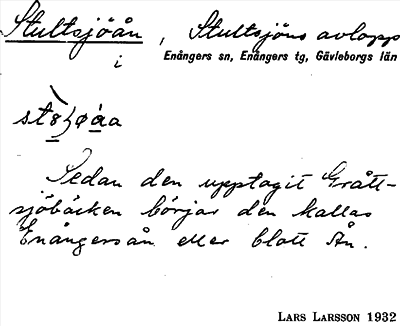 Stultsjöån, Stultsjöns avlopp
i Enångers sn, Enångers tg, Gävleborgs län
Sedan den upptagit Grått-
sjöbäcken börjar den kallas
Enångersån eller blott Ån.
LARS LARSSON 1932